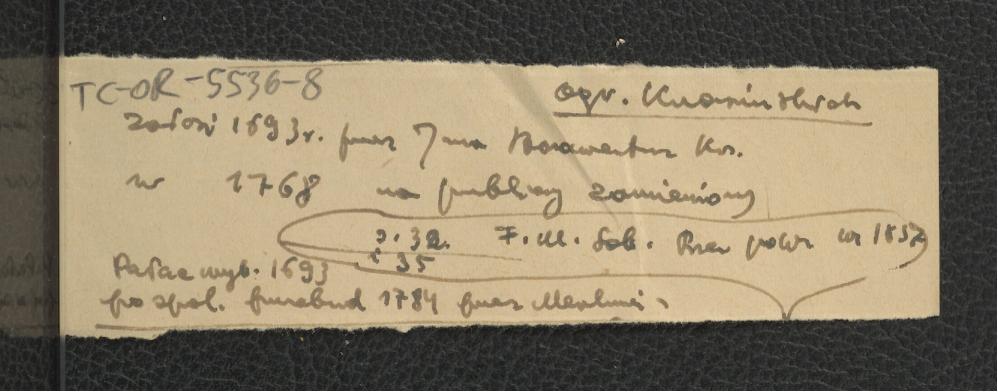 TC-OR-5536-8
ogr. Krasińskich
założ 1693r. przez Jana Bonawenturę Kra.
w 1768 na publiczny zamieniony
s. 32. F. M. Sob. Rzec powr w 1852
i 35
Pałac wyb. 1693
po spal. przebud 1784 przez Merliniego